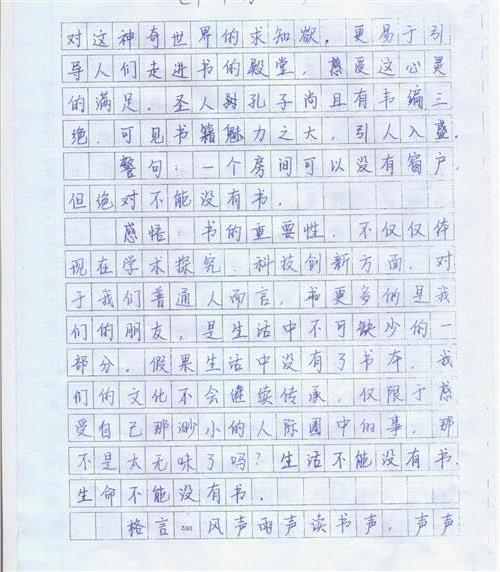 对这神奇世界的求知欲，更易于引
导人们走进书的殿堂，感受这心灵
的满足。圣人孔子尚且有韦编三
绝，可见书籍魅力之大，引人入盛。
警句：一个房间可以没有窗户，
但绝对不能没有书。
感悟：书的重要性，不仅仅体
现在学术探究、科技创新方面。对
于我们普通人而言，书更多的是我
们的朋友，是生活中不可缺少的一
部分。假果生活中没有了书本，我
们的文化不会继续传承，仅限于感
受自己那渺小的人际圈中的事，那
不是太无味了吗？生活不能没有书，
生命不能没有书。
格言 300 风声雨声读书声，声声